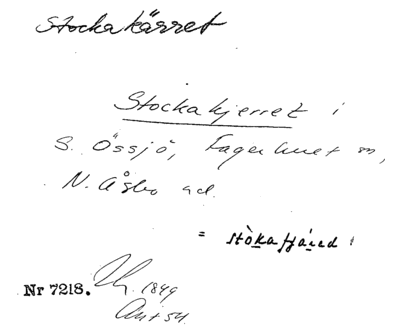 Stockakärret
Stockakjerret i
S. Össjö, Fagerhult sn,
N. Åsbo hd.
= stòkafjáred
Nr 7218.
1849